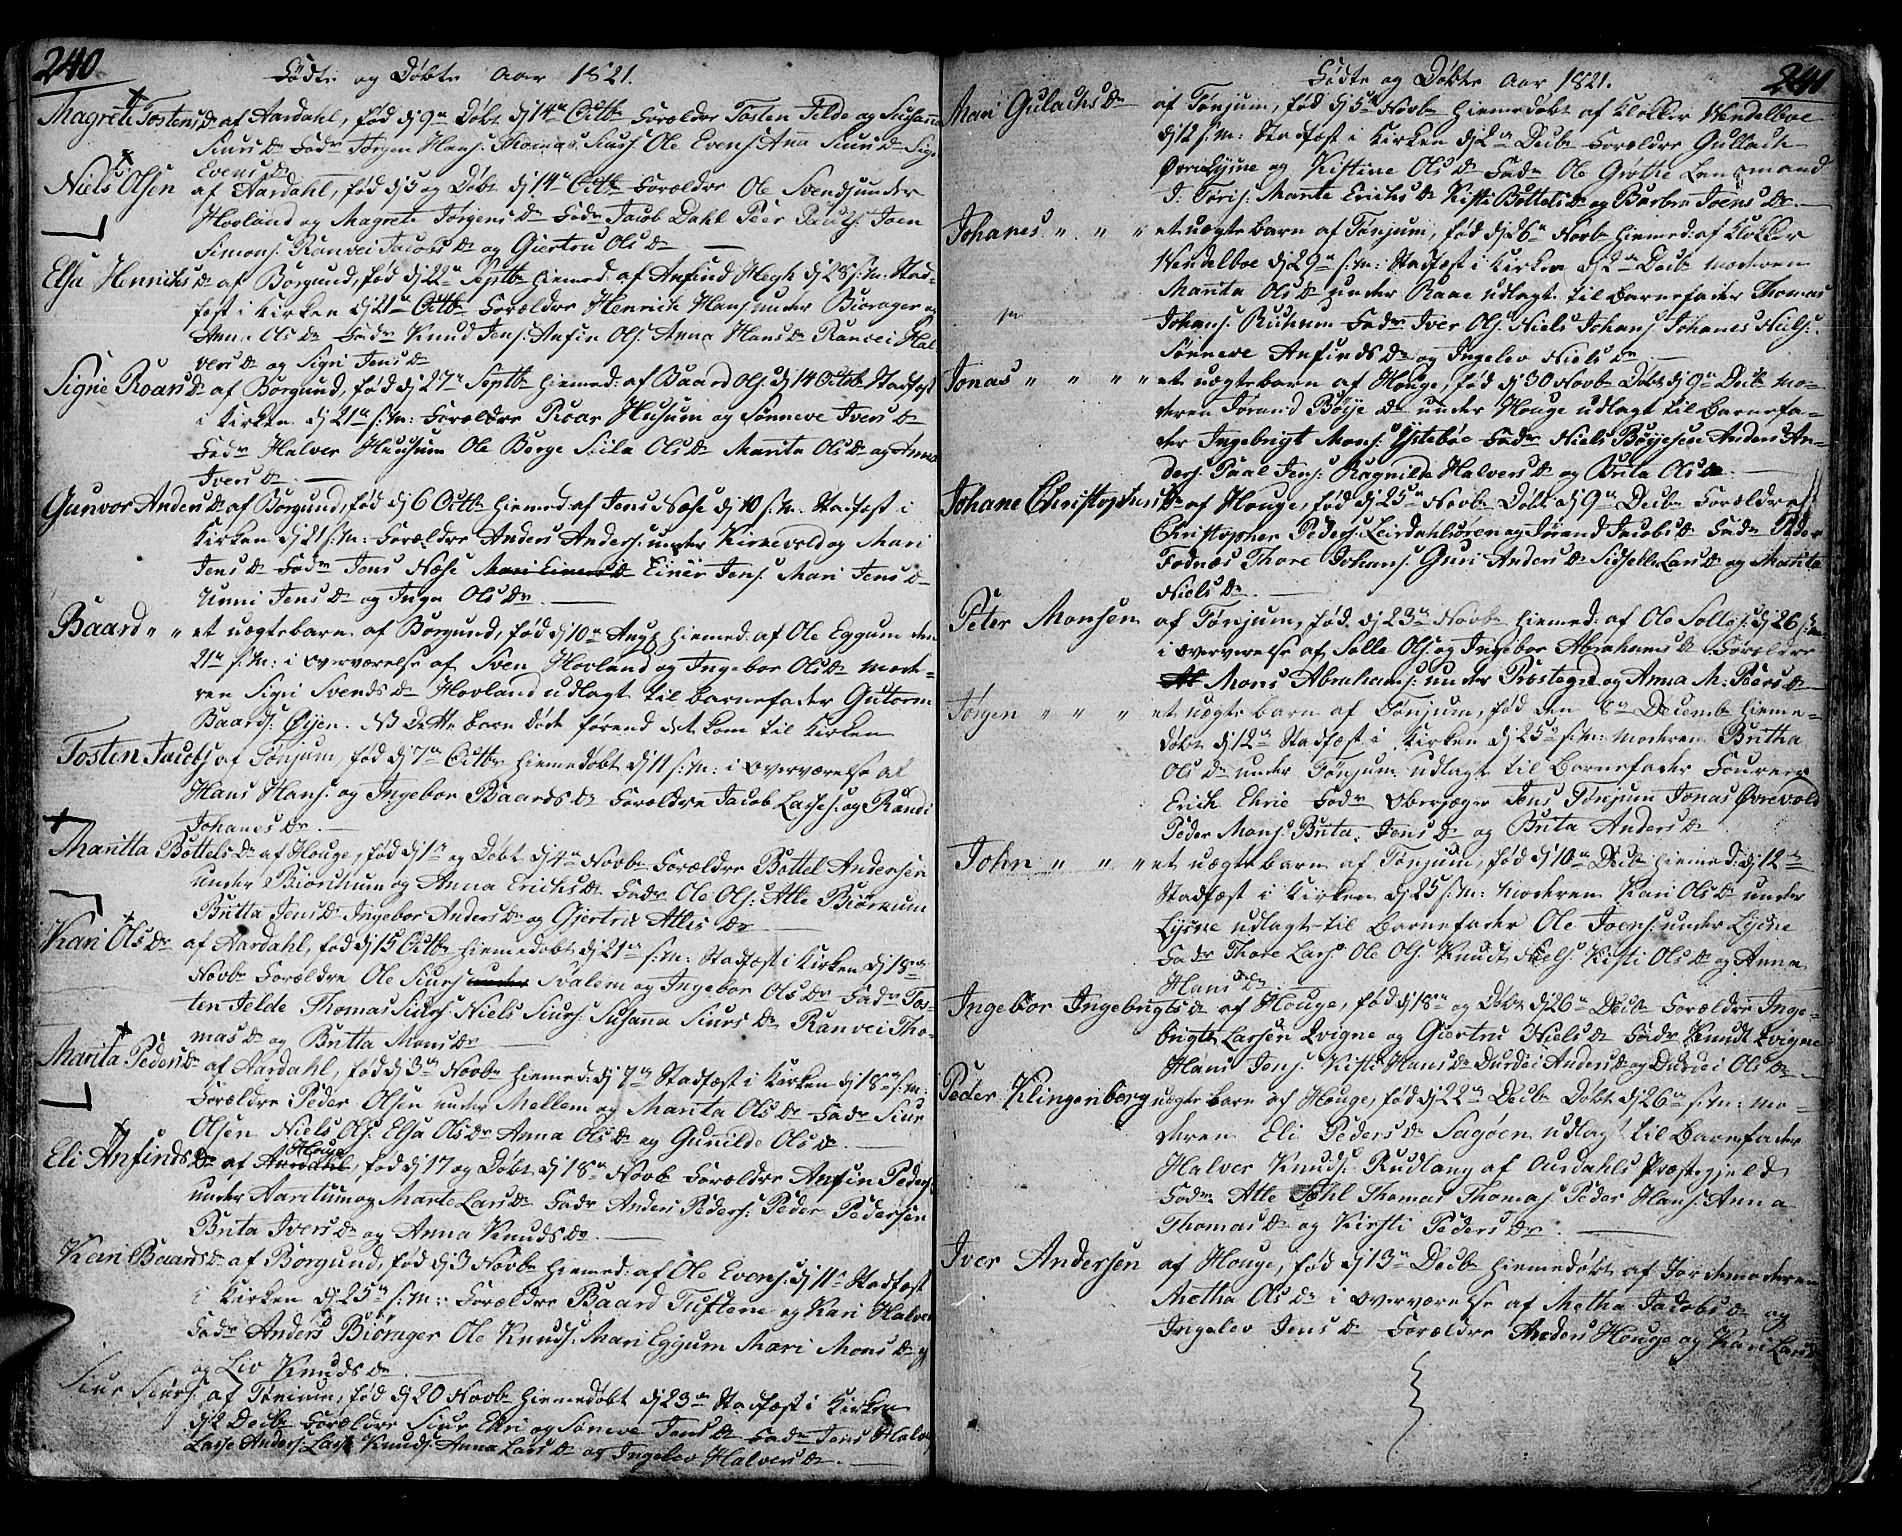 240
Fødte og Døbte Aar 1821.
Magrete Tostens Dr af Aardahl, fød dj 9n Døbt dj 14n Octb Forældre Tosten Jelde og Susana
Siurs Dr Fadr Jørgen Hans: Thomas Siurs: Ole Evens: Anna Siurs Dr Sign
Evens Dr
Niels Olsen af Aardahl, fød dj 5 og Døbt dj 14n Octb Forældre Ole Svends: under
Hovland og Magrete Jørgens Dr Fadr Jacob Dahl Peer Pauls: Joen
Simons: Ranvei Jacobs Dr og Giertru Ols Dr
Elsa Henrichs Dr af Borgund, fød dj 22n Septbr hiemed: af Anfind Hegh dj 28 s: m: Stad-
fæst i Kirken dj 21n Octb Forældre Henrich Hans: under Biørager og
Anna Ols Dr Fadr Knud Jens: Anfin Ols: Anna Hans Dr Ranvei Hal
vers Dr og Sigri Jens Dr
Signe Roars Dr af Borgund, fød dj 27n Septbr hiemed: af Baard Ols: dj 14 Octob Stadfæst
i Kirken dj 21n s: m: Forældre Roar Husum og Sønneve Ivers Dr
Fadr Halver Huusum Ole Borge Siila Ols Dr Marita Ols Dr og Anna
Ivers Dr
Gunvor Anders Dr af Borgund, fød dj 6 Octbr hiemed: af Jens Næse dj 10 s: m: Stadfæst i
Kirken dj 21 s: m: Forældre Anders Anders: under Kirkevold og Mari
Jens Dr Fadr Jens Næse Mari Einers Dr Einer Jens: Mari Jens Dr
Unni Jens Dr og Inga Ols Dr
Baard " " et uægte barn af Borgund, fød dj 10n Aug: hiemed: af Ole Eggum den
21n s: m: i overværelse af Sven Hovland og Ingebor Ols Dr mode-
ren Sigri Svends Dr Hovland udlagt til Barnefader Gutorm
Baards: Øijen. NB Dette barn døde førend det kom til Kirken
Tosten Jacobs: af Tønjum, fød dj 7n Octbr hiemedøbt dj 11 s: m: i overværelse af
Hans Hans: og Ingebor Baards Dr Forældre Jacob Lasses: og Randi
Johanes Dr
Maritta Bottels Dr af Houge, fød dj 1n og Døbt dj 4n Novbr Forældre Bottel Andersen
under Biørchum og Anna Erichs Dr Fadr Ole Ols: Atle Biørkum
Britta Jens Dr Ingebor Anders Dr og Gjertrue Atles Dr
Kari Ols Dr af Aardahl, fød dj 15 Octbr hiemedøbt dj 21n s: m: Stadfæst i Kirken dj 18n
Novbr Forældre Ole Siurs: under Svalem og Ingebor Ols Dr Fadr Tos-
ten Jelde Thomas Siurs: Niels Siurs: Susanna Siurs Dr Ranvei Tho-
mas Dr og Britta Mons Dr
Marita Peders Dr af Aardahl, fød dj 3n Novbr hiemed: dj 7n Stadfæst i Kirken dj 18n s: m:
Forældre Peder Olsen under Mellem og Marita Ols Dr Fadr Siur
Olsen Niels Ols: Elsa Ols Dr Anna Ols Dr og Gunilde Ols Dr
Eli Anfinds Dr af Aardahl Houge, fød dj 17 og Døbt dj 18n Novb Forældre Anfin Peders:
under Aaretum og Marte Lars Dr Fadr Anders Peders: Peder Pedersen
Brita Ivers Dr og Anna Knuds Dr
Kari Baards Dr af Borgund, fød dj 3 Novbr hiemed: af Ole Evens: dj 11n Stadfæst
i Kirken dj 25n s: m: Forældre Baard Tuftene og Kari Halvers
Fadr Anders Biørager Ole Knuds: Mari Eggum Mari Mons Dr
og Liv Knuds Dr
Siur Siurs: af Tønium, fød dj 20 Novbr hiemedøbt dj 23n Stadfæst i Kirken
dj 2 Decbr Forældre Siur Ehri og Søneve Jens Dr Fadr Jens Halvers:
Lasse Anders: Lasse Knuds: Anna Lars Dr og Ingelev Halvers Dr
241
Fødte og Døbte Aar 1821.
Mari Gulachs Dr af Tønjum, fød dj 5n Novbr hiemedøbt af Klokker Wendelboe
dj 12 s: m: Stadfæst i Kirken dj 2n Decb Forældre Gullach
Øvre Lysne og Kistine Ols Dr Fadr Ole Grøthe Lensmand
J: Joris: Marita Erichs Dr Kisti Bottels Dr og Barbra Joens Dr
Johanes " " " et uægte barn af Tønjum, fød dj 26n Novbr hiemed: af Klokker
Wendelboe dj 29n s: m: Stadfæst i Kirken dj 2n Decb moderen
Marita Ols Dr under Raae udlagt til Barnefader Thomas
Johans: Ruhum Fadr Iver Ols: Niels Johans: Johanes Niels:
Sønneve Anfinds Dr og Ingelev Niels Dr
Jonas " " " " et uægte barn af Houge, fød dj 30 Novbr Døbt dj 9n Decb mo-
deren Jørand Bøije Dr under Houge udlagt til barnefa-
der Ingebrigt Mons: Ystebøe Fadr Niels Bøyesen Anders An-
ders: Paal Jens: Ragnilda Halvers Dr og Brita Ols Dr
Johane Christophers Dr af Houge, fød dj 25n Novbr Døbt dj 9n Decb Forældre
Christopher Peders: Leirdahlsøren og Jørand Jacobs Dr Fadr Peder
Fodnæs Thore Johans: Guri Anders Dr Sidselle Lars Dr og Marita
Niels Dr
Peter Monsen af Tønjum, fød dj 23n Novbr hiemed: af Ole Solles: dj 26 s: m:
i overværelse af Solle Ols: og Ingebor Abrahams Dr Forældre
Mons Abrahams: under Prestegd og Anna M: Peers Dr
Jørgen " " " et uægte barn af Tønjum, fød den 8n Decembr hieme-
døbt dj 12n Stadfæst i Kirken dj 25n s: m: moderen Britha
Ols Dr under Tønjum udlagt til Barnefader Fourer
Erich Ehrie Fadr Oberjæger Jens Tønjum Jonas Øvrevold
Peder Mons: Brita Jens Dr og Brita Anders Dr
John " " " et uægte barn af Tønjum, fød dj 10n Decb hiemed: dj 12n
Stadfæst i Kirken dj 25 s: m: moderen Kari Ols Dr under
Lysne udlagt til Barnefader Ole Joens: under Lysne
Fadr Thore Lars: Ole Ols: Knudt Niels: Kisti Ols Dr og Anna
Hans Dr
Ingebor Ingebrigts Dr af Houge, fød dj 18n og Døbt dj 26n Decb Forældre Inge-
brigt Larsen Qvigne og Giertru Niels Dr Fadr Knudt Qvigne
Hans Jens: Kisti Hans Dr Durdei Anders Dr og Durdei Ols Dr
Peder Klingenberg uægte barn af Houge, fød dj 22n Decb Døbt dj 26n s: m: mo-
deren Eli Peders Dr Sagøen udlagt til Barnefader
Halver Knuds: Rudlang af Aurdahls Præstegjeld
Fadr Atle Sæhl Thomas Thomas: Peder Hans: Anna
Thomas Dr og Kirsti Peders Dr
Iver Andersen af Houge, fød dj 13n Decb hiemedøbt af Jordemoderen
Metha Ols Dr i overværelse af Metha Jacobs Dr og
Ingelev Jens Dr Forældre Anders Houge og Kari Lars Dr